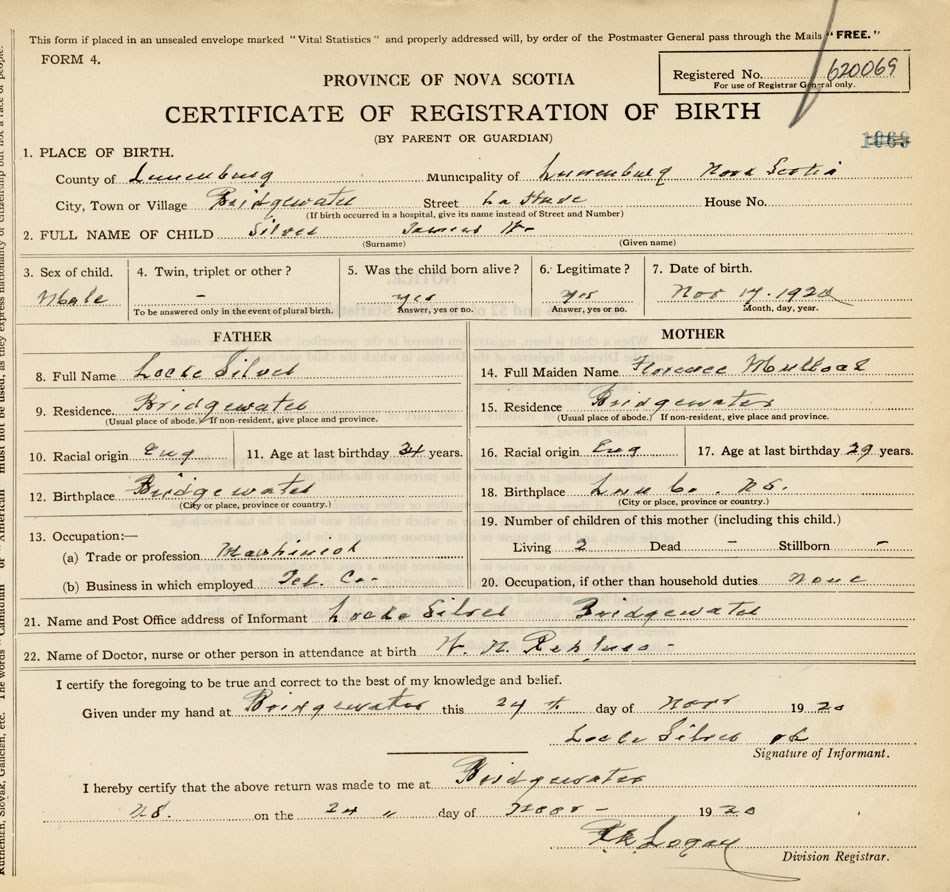 This form if placed in an unsealed envelope marked "Vital Statistics" and properly addressed will, by order of the Postmaster General pass through the Mails "FREE."
FORM 4.
PROVINCE OF NOVA SCOTIA
Registered No. 620069
For use of Registrar General only.
CERTIFICATE OF REGISTRATION OF BIRTH
(BY PARENT OR GUARDIAN)
1. PLACE OF BIRTH.
County of Lunenburg Municipality of Lunenburg Nova Scotia
City, Town or Village Bridgewater Street La Have House No.
(If birth occurred in a hospital, give its name instead of Street and Number)
2. FULL NAME OF CHILD Silver James
(Surname) (Given name)
3. Sex of child. 4. Twin, triplet or other? 5. Was the child born alive? 6. Legitimate? 7. Date of birth.
Male - yes yes Nov 17. 1920
To be answered only in the event of plural birth. Answer, yes or no. Answer, yes or no. Month, day, year.
FATHER MOTHER
8. Full Name Locke Silver 14. Full Maiden Name Florence
9. Residence. Bridgewater 15. Residence Bridgewater
(Usual place of abode. If non-resident, give place and province. (Usual place of abode.) If non-resident, give place and province.
10. Racial origin Eng 11. Age at last birthday years. 16. Racial origin Eng 17. Age at last birthday 29 years.
12. Birthplace Bridgewater 18. Birthplace Lun Co. NS.
(City or place, province or country.) (City or place, province or country.)
13. Occupation:— 19. Number of children of this mother (including this child.)
(a) Trade or profession Machinist Living 2 Dead - Stillborn -
(b) Business in which employed Tel. Co- 20. Occupation, if other than household duties None
21. Name and Post Office address of Informant Locke Silver Bridgewater
22. Name of Doctor, nurse or other person in attendance at birth W. N.
I certify the foregoing to be true and correct to the best of my knowledge and belief.
Given under my hand at Bridgewater this 24 th day of Nov 1920
Locke Silver
Signature of Informant.
I hereby certify that the above return was made to me at Bridgewater
NS. on the 24 " day of Nov - 1920
Logan
Division Registrar.